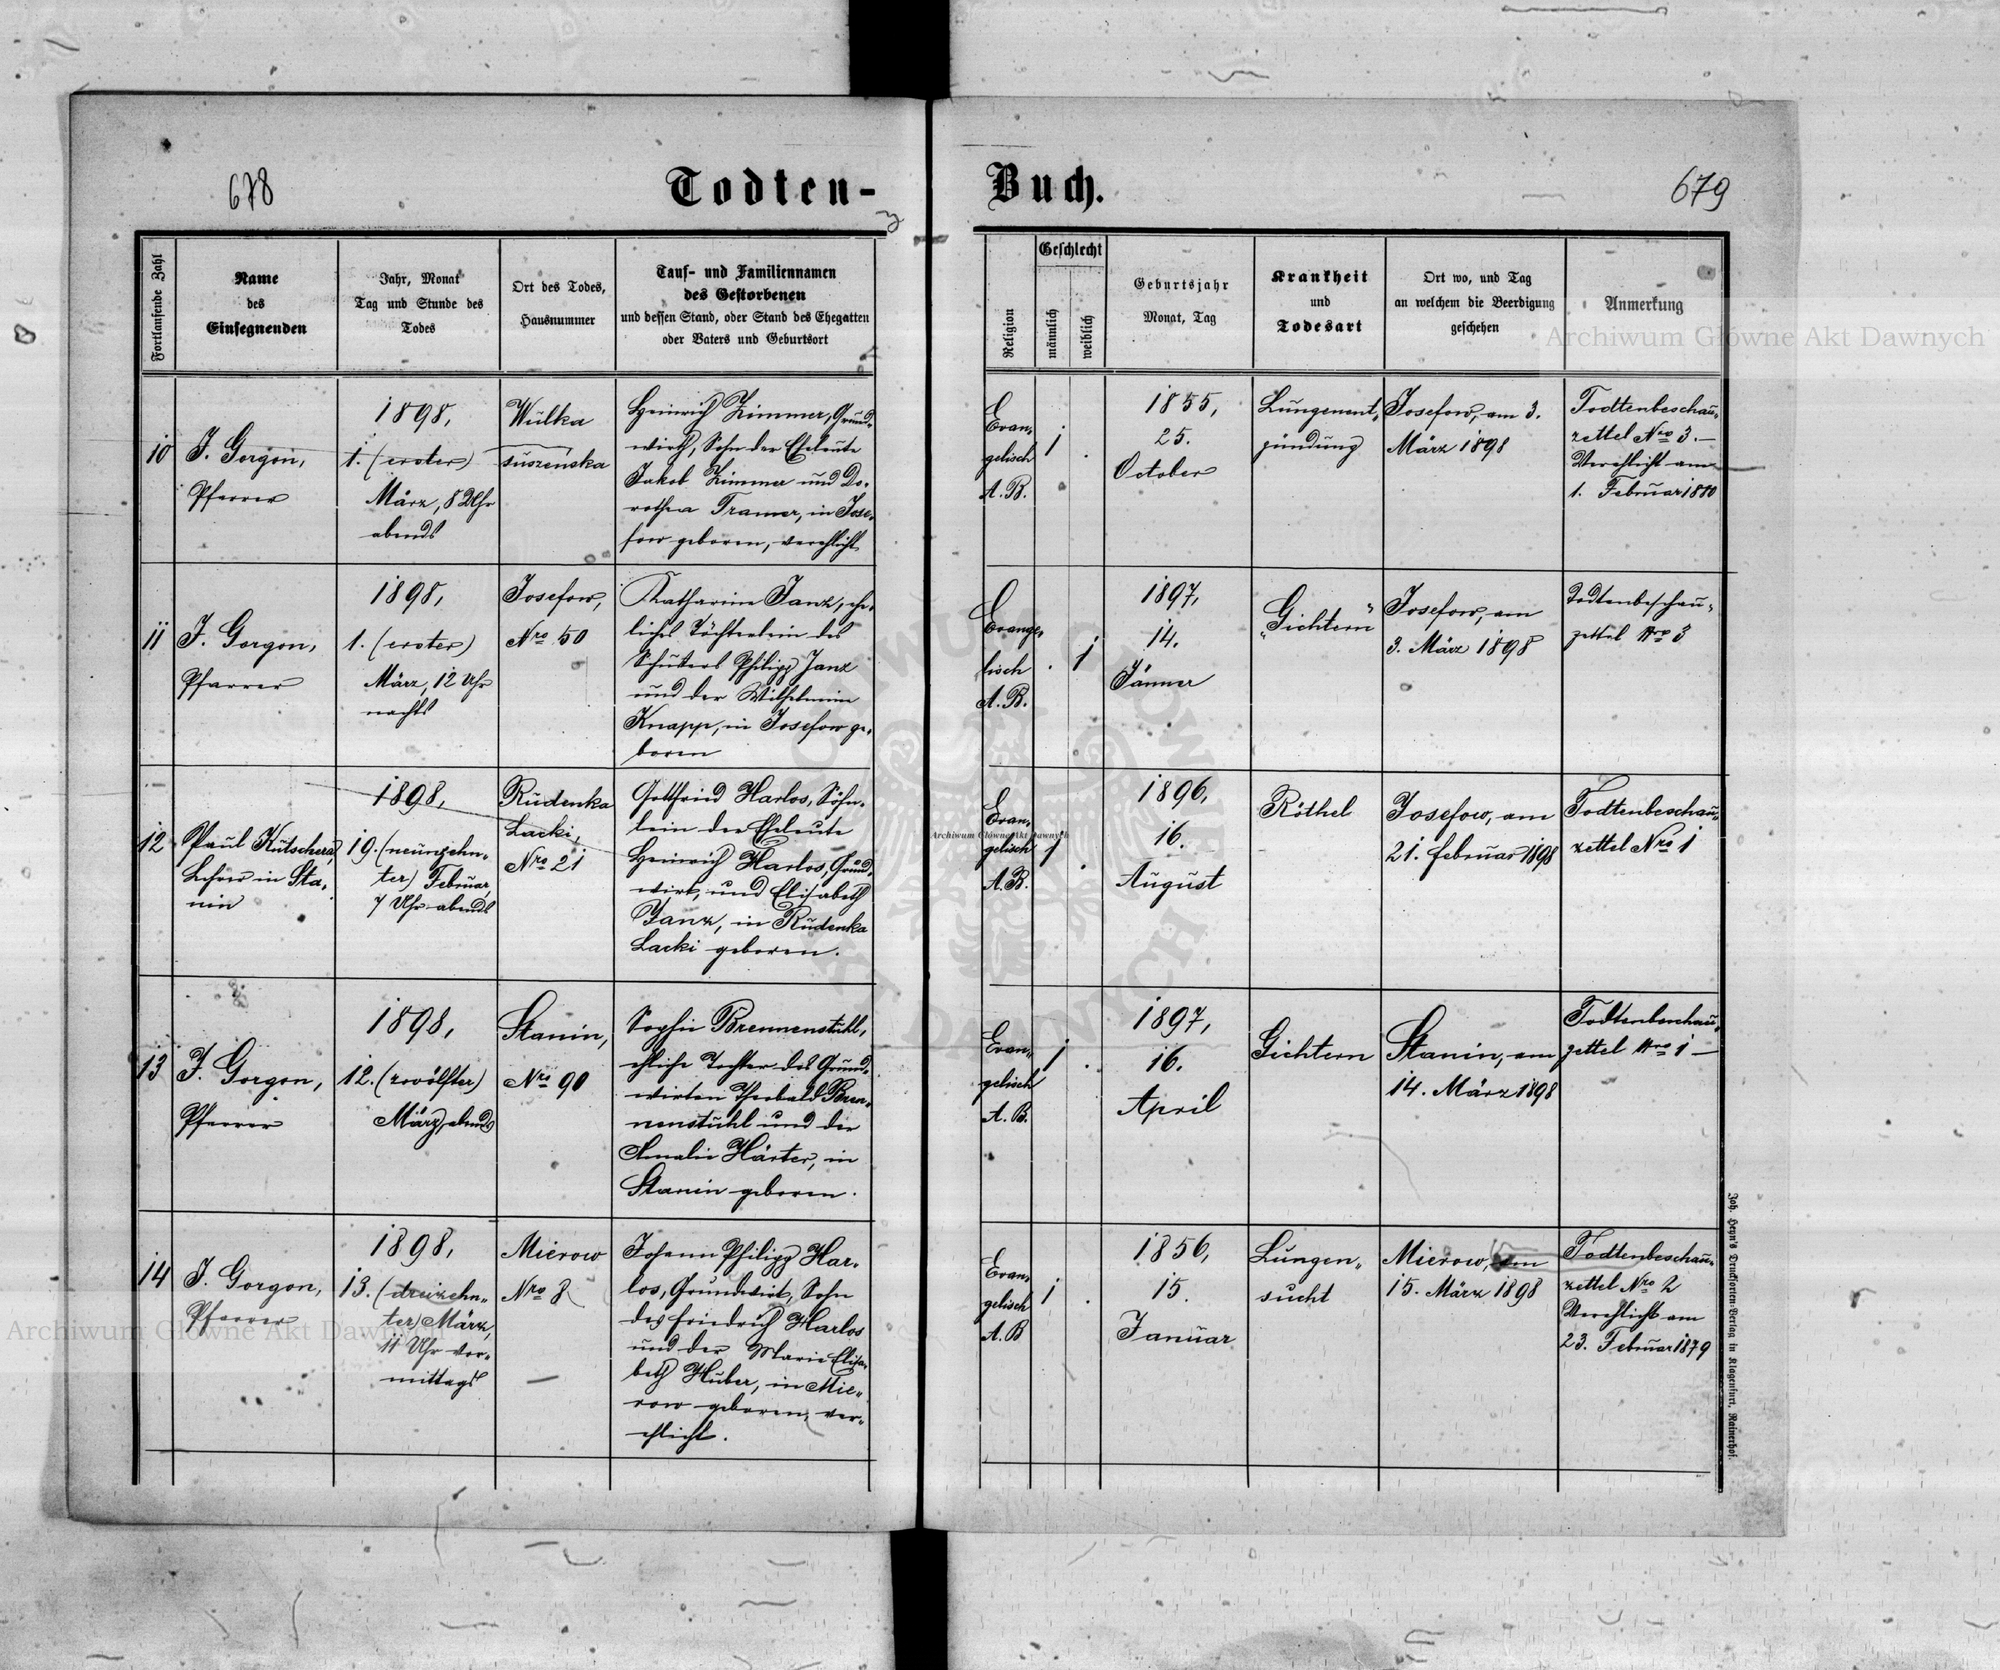 678
Todten-
Buch.
679
Fortlaufende Zahl
Name
des
Einsegnenden
Jahr, Monat
Tag und Stunde des
Todes
Ort des Todes,
Hausnummer
Tauf- und Familiennamen
des Gestorbenen
und dessen Stand, oder Stand des Ehegatten
oder Vaters und Geburtsort
Religion
Geschlecht
männlich
weiblich
Geburtsjahr
Monat, Tag
Krankheit
und
Todesart
Ort wo, und Tag
an welchem die Beerdigung
geschehen
Anmerkung
10
J. Gorgon,
Pfarrer
1898,
1. (erster)
März, 8 Uhr
abends
Wulka
suszenska
Heinrich Zimmer, Grund-
wirth, Sohn der Eheleute
Jakob Zimmer und Do-
rothea Tramer, in Jose-
fow geboren, verehlicht
Evan-
gelisch
A. B.
1
.
1855,
25.
October
Lungenent-
zündung
Josefow, am 3.
März 1898
Todtenbeschau-
zettel Nro 3. —
Verehlicht am
1. Februar 1880
11
J. Gorgon,
Pfarrer
1898,
1. (erster)
März, 12 Uhr
nachts
Josefow,
Nro 50
Katharine Janz, ehe-
liches Töchterlein des
Schusters Philipp Janz
und der Wilhelmine
Knapp, in Josefow ge-
boren
Evange-
lisch
A. B.
.
1
1897,
14.
Jänner
„Gichtern"
Josefow, am
3. März 1898
Todtenbeschau-
zettel Nro 3
12
Paul Kutschera,
Lehrer in Sta-
nin
1898,
19. (neunzehn-
ter) Februar,
7 Uhr abends
Rudenka
Lacki,
Nro 21
Gottfried Harlos, Söhn-
lein der Eheleute
Heinrich Harlos, Grund-
wirt, und Elisabeth
Janz, in Rudenka
Lacki geboren.
Evan-
gelisch
A. B.
1
.
1896,
16.
August
Röthel
Josefow, am
21. Februar 1898
Todtenbeschau-
zettel Nro 1
13
J. Gorgon,
Pfarrer
1898,
12. (zwölfter)
März, abends
Stanin,
Nro 90
Sophie Brennenstuhl,
ehliche Tochter des Grund-
wirten Theobald Bren-
nenstuhl und der
Amalie Härter, in
Stanin geboren.
Evan-
gelisch
A. B.
1
.
1897,
16.
April
Gichtern
Stanin, am
14. März 1898
Todtenbeschau-
zettel Nro 1 —
14
J. Gorgon,
Pfarrer
1898,
13. (dreizehn-
ter) März,
11 Uhr vor-
mittags
Mierow
Nro 8
Johann Philipp Har-
los, Grundwirt, Sohn
des Friedrich Harlos
und der Marie Elisa-
beth Huber, in Mie-
row geboren, ver-
ehlicht.
Evan-
gelisch
A. B
1
.
1856,
15.
Januar
Lungen-
sucht
Mierow, am
15. März 1898
Todtenbeschau-
zettel Nro 2
Verehlicht am
23. Februar 1879
Joh. Heyn's Drucksorten-Verlag in Klagenfurt, Rainerhof.
Archiwum Główne Akt Dawnych
Archiwum Główne Akt Dawnych
Archiwum Główne Akt Dawnych
ARCHIWUM GŁÓWNE AKT DAWNYCH